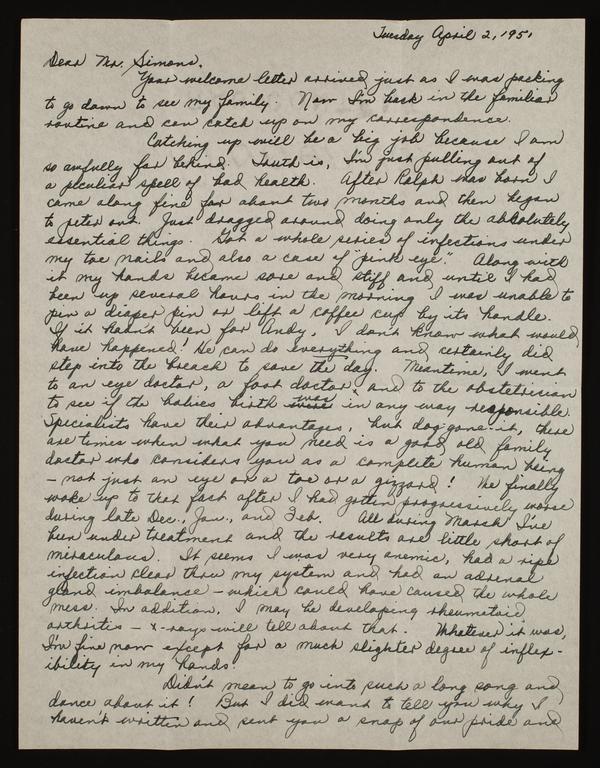 Tuesday April 2, 1951
Dear Mr. Simons,
Your welcome letter arrived just as I was packing
to go down to see my family. Now I'm back in the familiar
routine and can catch up on my correspondence.
Catching up will be a big job because I am
so awfully far behind. Truth is, I'm just pulling out of
a peculiar spell of bad health. After Ralph was born I
came along fine for about two months and then began
to peter out. Just dragged around doing only the absolutely
essential things. Got a whole series of infections under
my toe nails and also a case of "pink eye". Along with
it my hands became sore and stiff and until I had
been up several hours in the morning I was unable to
pin a diaper pin or lift a coffee cup by its handle.
If it hadn't been for Andy, I don't know what would
have happened! He can do everything and certainly did
step into the breach to save the day. Meantime, I went
to an eye doctor, a foot doctor, and to the obstetrician
to see if the babies birth was in any way responsible.
Specialists have their advantages, but dog-gone-it, there
are times when what you need is a good old family
doctor who considers you as a complete human being
- not just an eye or a toe or a gizzard! We finally
woke up to that fact after I had gotten progressively worse
during late Dec., Jan., and Feb. All during March I've
been under treatment and the results are little short of
miraculous. It seems I was very anemic, had a ripe
infection clear thru my system and had an adrenal
gland imbalance - which could have caused the whole
mess. In addition, I may be developing rheumatoid
arthritis - x-rays will tell about that. Whatever it was,
I'm fine now except for a much slighter degree of inflex-
ibility in my hands.
Didn't mean to go into such a long song and
dance about it! But I did want to tell you why I
haven't written and sent you a snap of our pride and